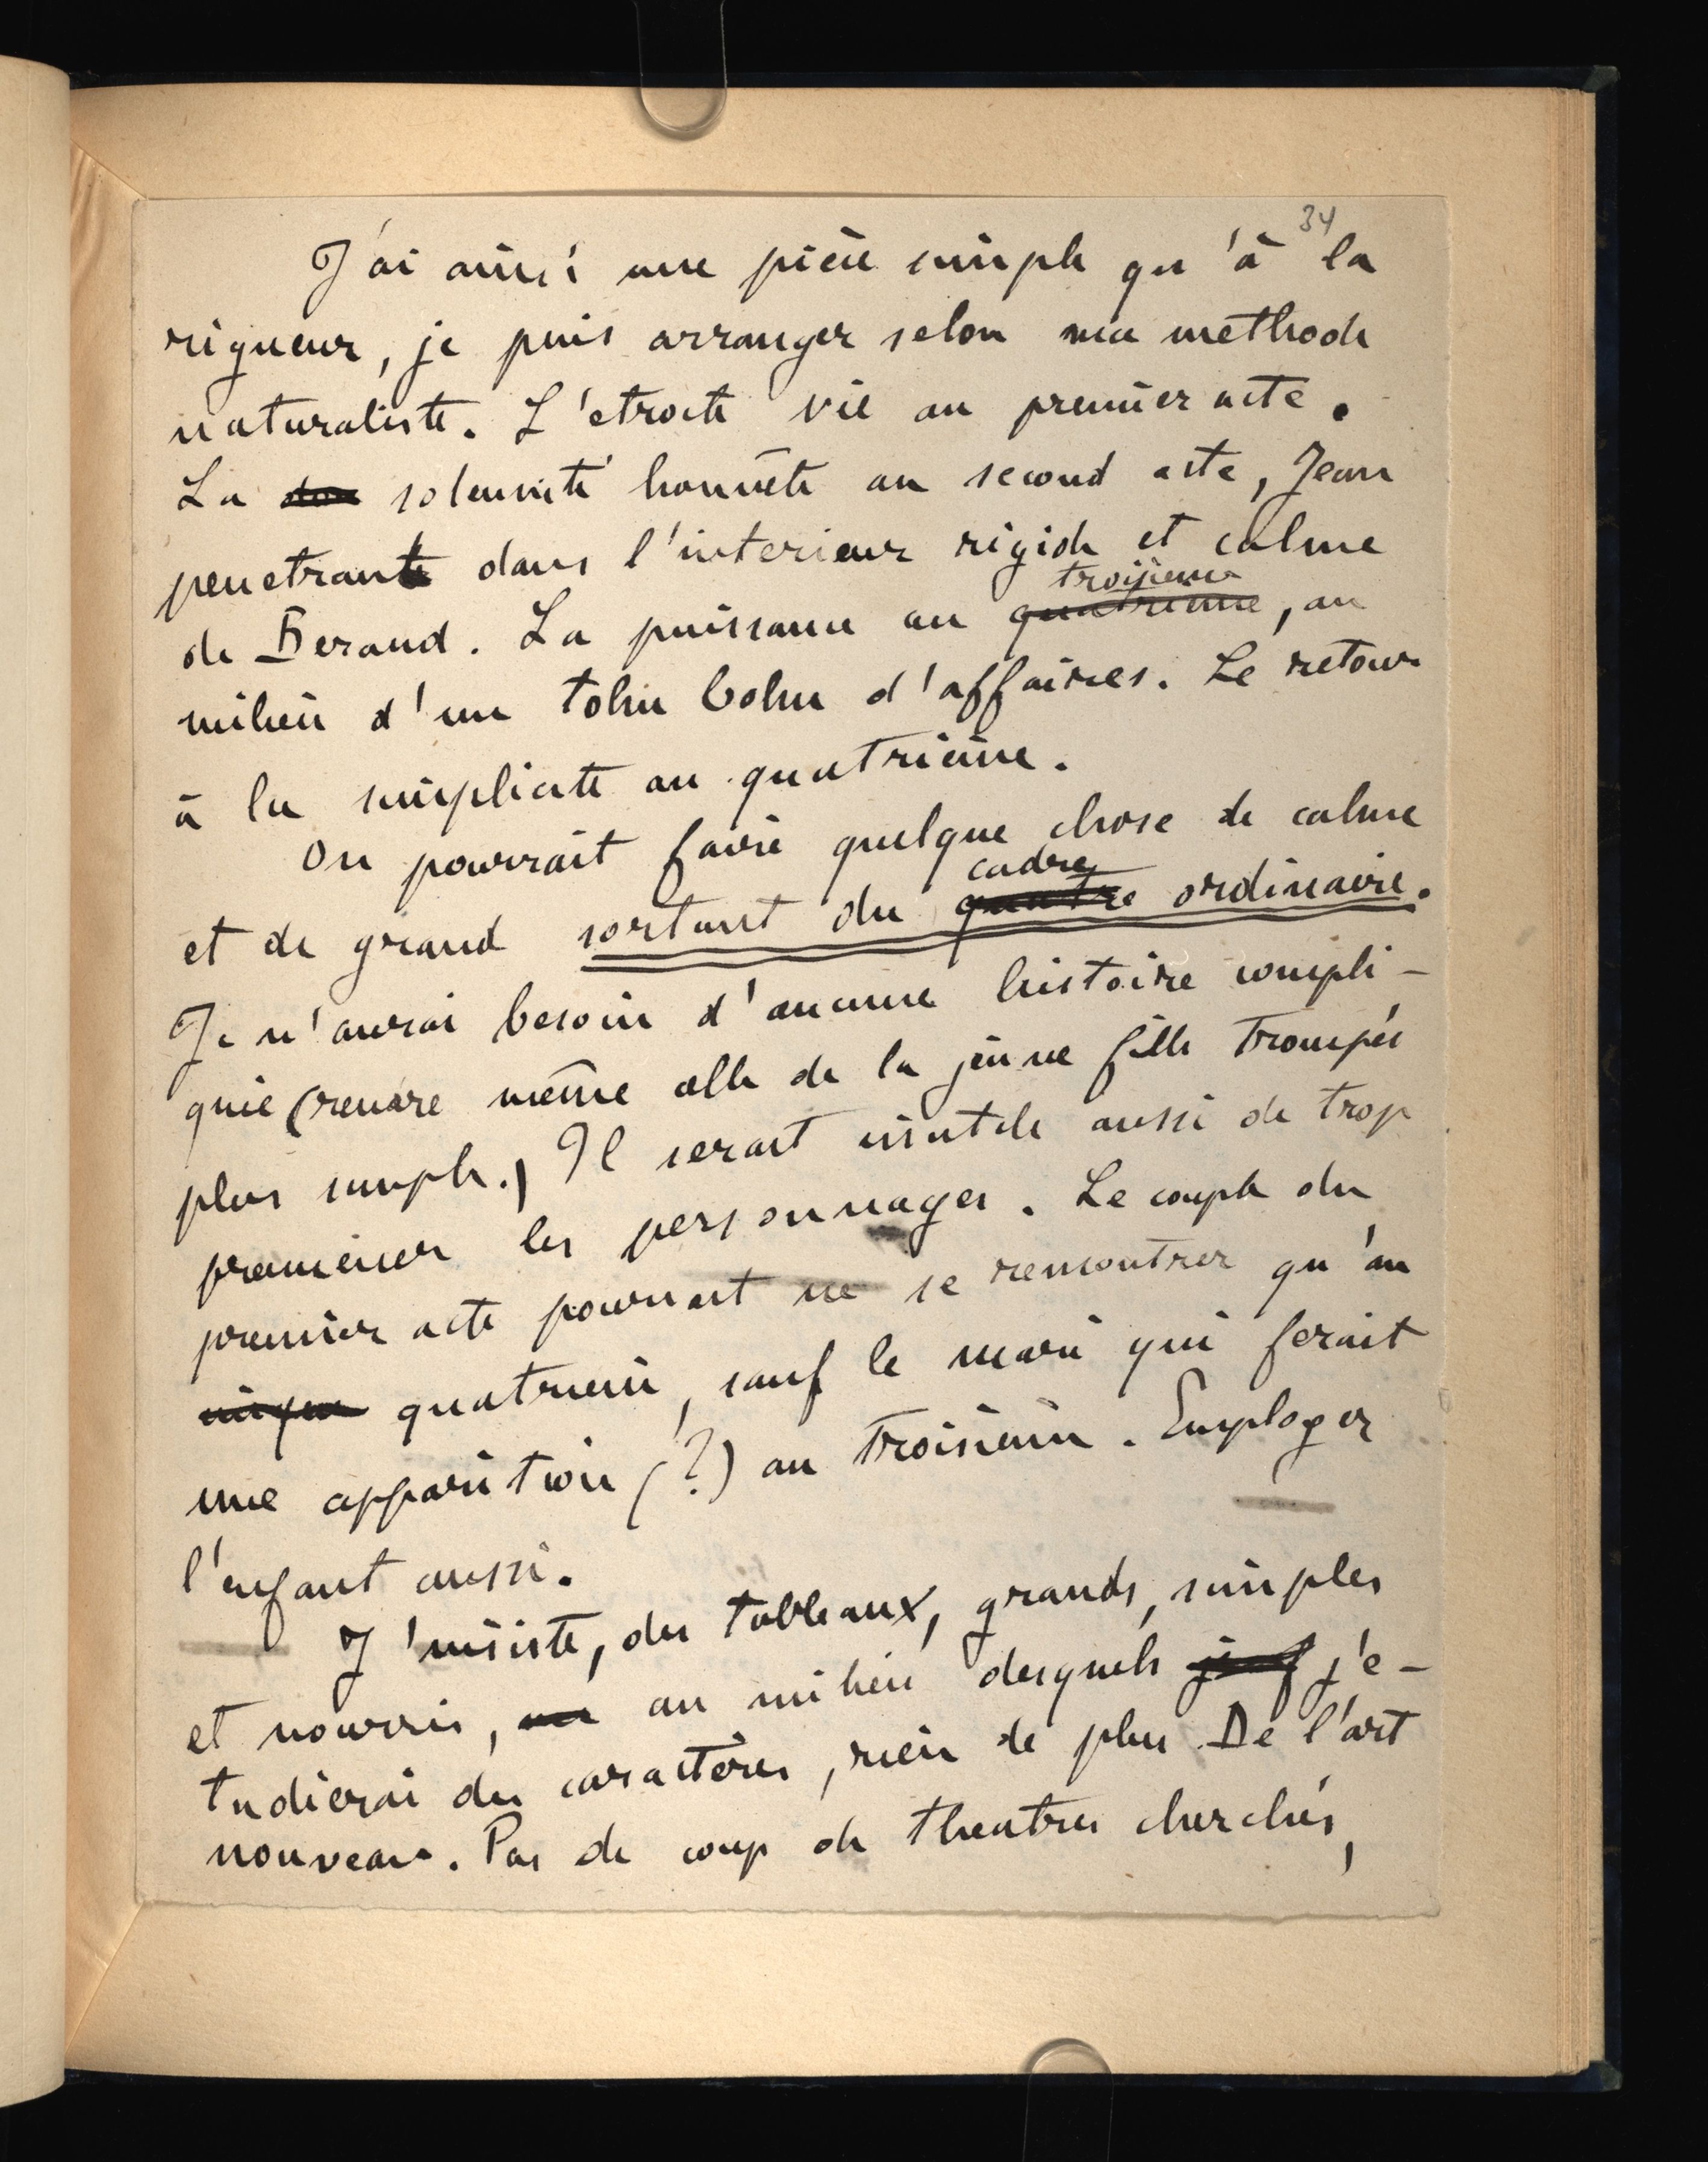 34
J'ai ainsi une pièce simple qu'à la
rigueur, je puis arranger selon ma methode
naturaliste. L'etroite vie au premier acte.
La solennité honnête au second acte, Jean
penetrant dans l'interieur rigide et calme
troisième
de Beraud. La puissance au quatrieme, au
milieu d'un tohu bohu d'affaires. Le retour
à la simplicite au quatrième.
On pourrait faire quelque chose de calme
cadre
et de grand sortant du quatre ordinaire.
Je n'aurai besoin d'aucune histoire compli-
quée (rendre même celle de la jeune fille trompée
plus simple.) Il serait inutile aussi de trop
promener les personnages. Le couple du
premier acte pourrait ne se rencontrer qu'au
quatrieme, sauf le mari qui ferait
une apparition (?) au troisième. Employer
l'enfant aussi.
J'insiste, des tableaux, grands, simples
et nourris, au milieu desquels j'e-
tudierai des caractères, rien de plus. De l'art
nouveau. Pas de coup de theatres cherchés,